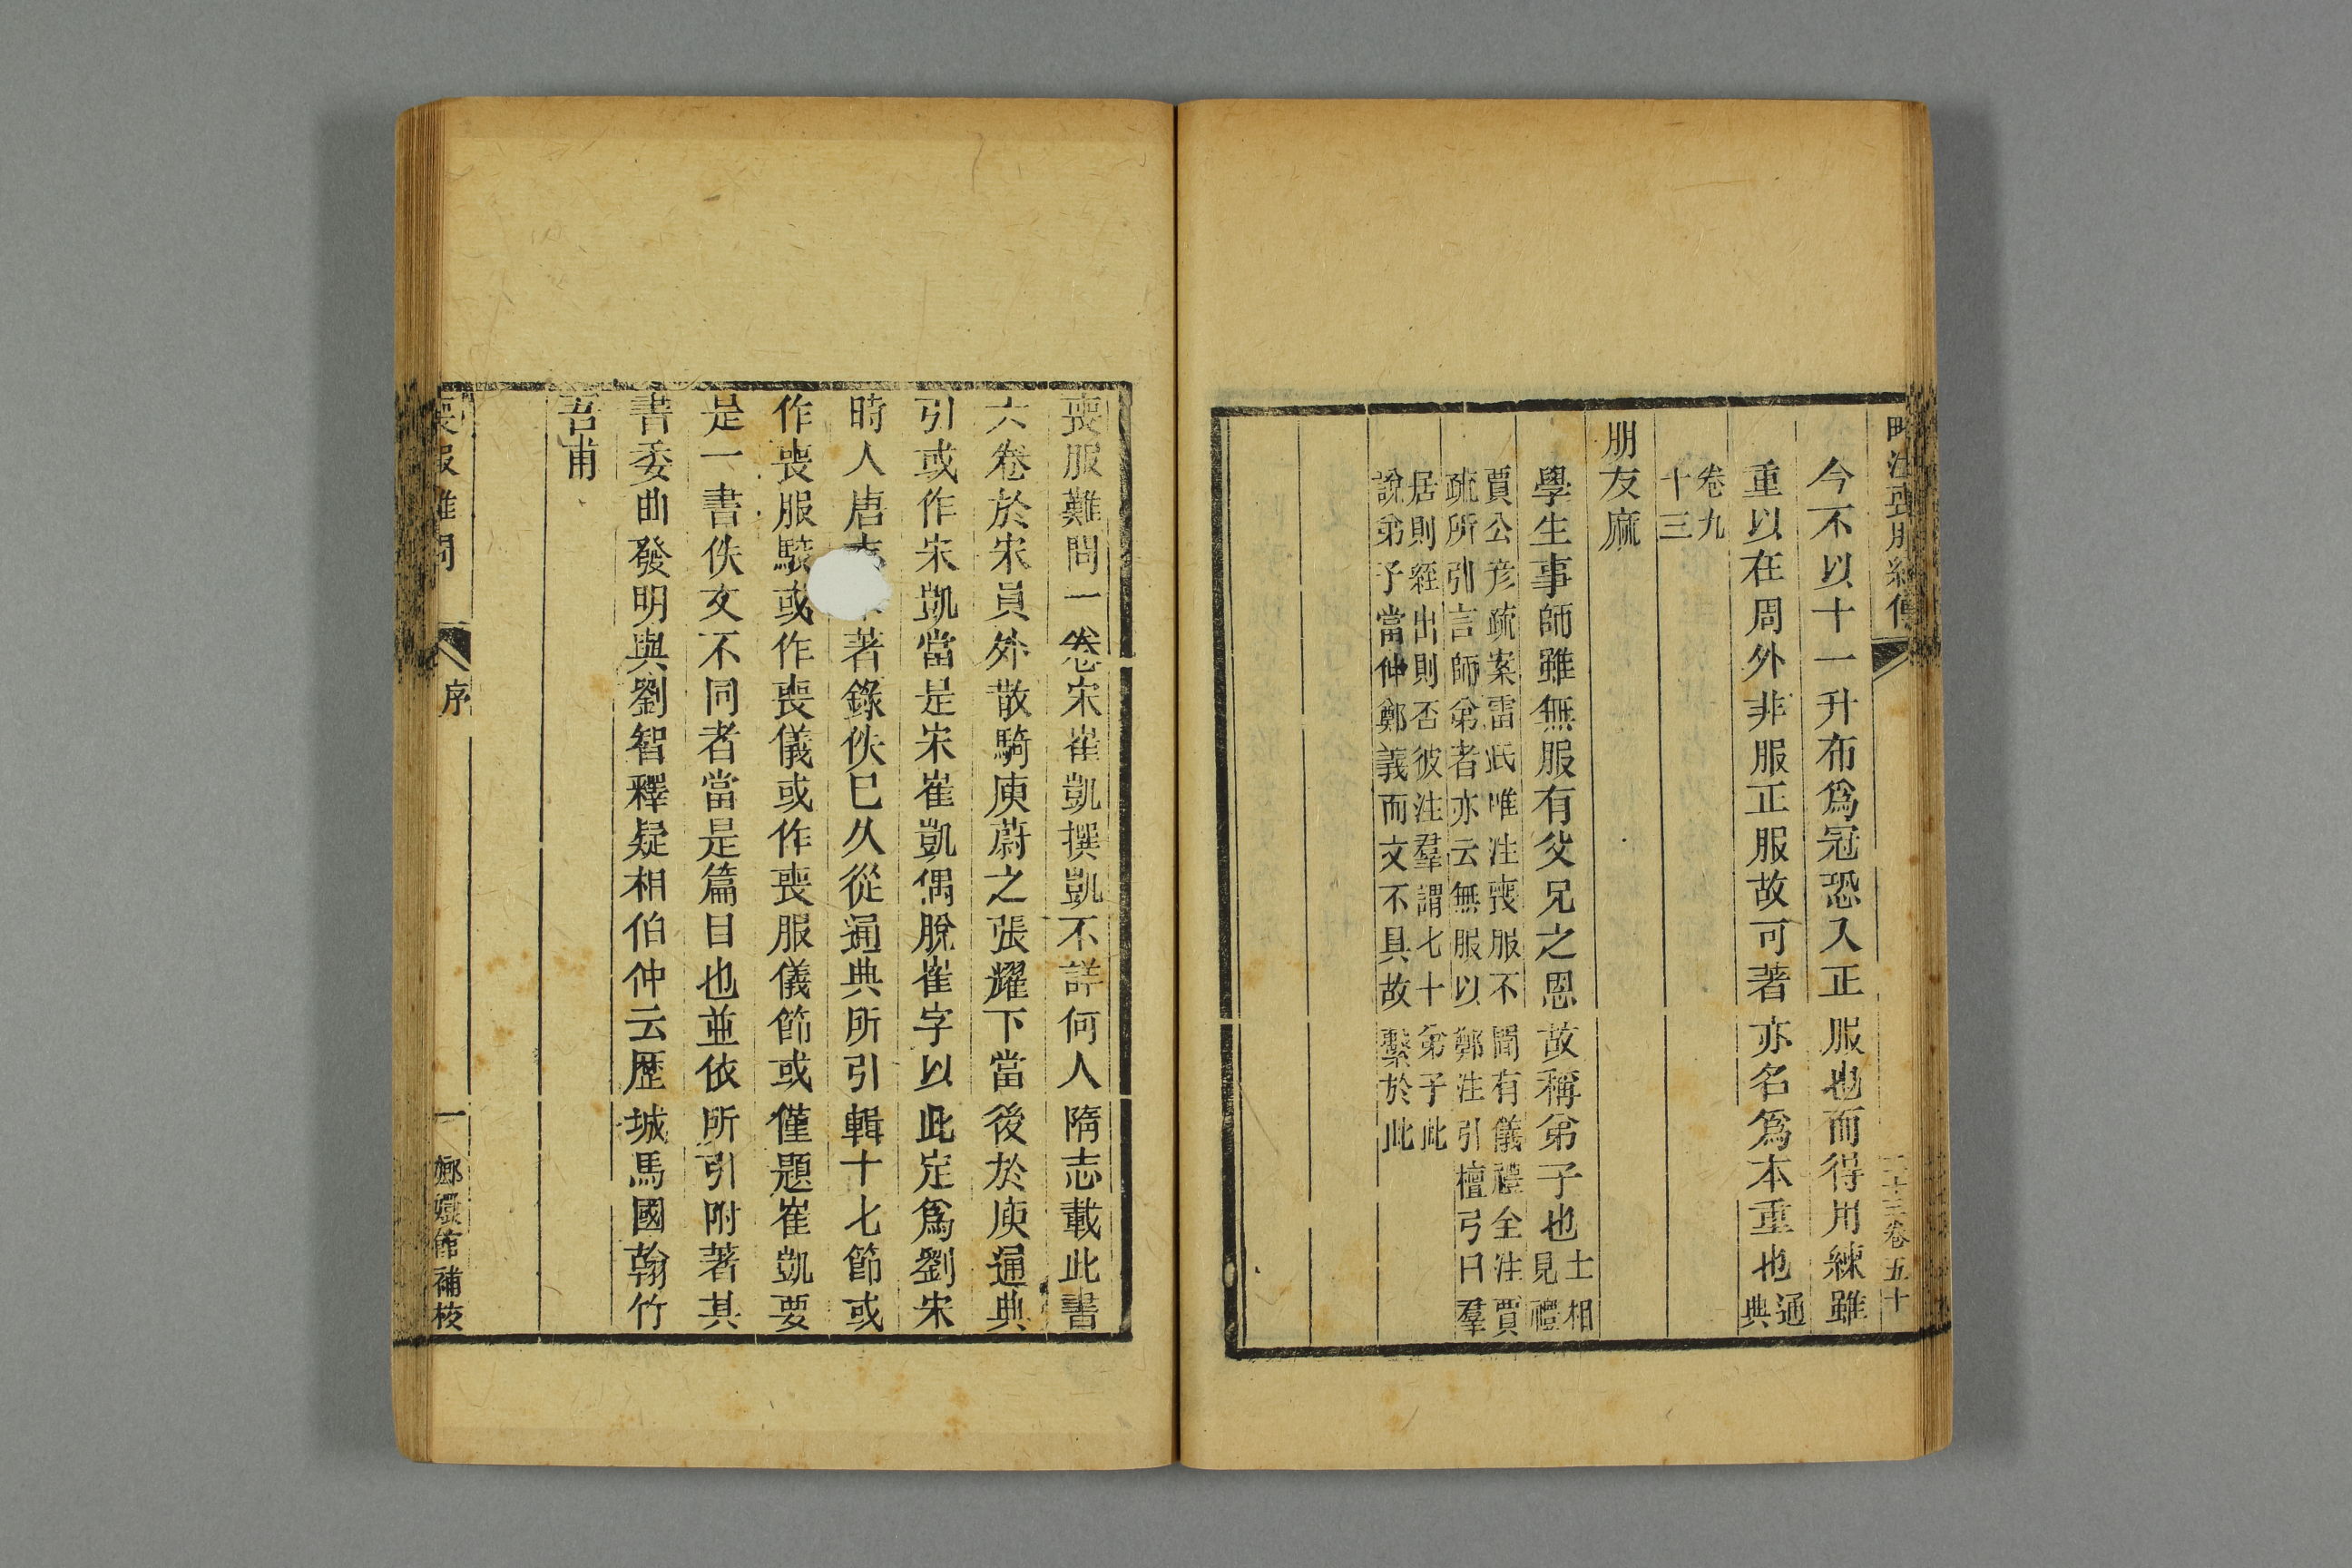 略注喪服經傳
二十三卷五十
今不以十一升布爲冠恐入正服也而得用練雖
重以在周外非服正服故可著亦名爲本重也通典
卷九十三
朋友麻
學生事師雖無服有父兄之恩故稱弟子也士相見禮
賈公彥疏案雷氏唯注喪服不聞有儀禮全注賈
疏所引言師弟者亦云無服以鄭注引檀弓曰羣
居則絰出則否彼注羣謂七十弟子此
說弟子當仲鄭義而文不具故繫於此
喪服難問一卷宋崔凱撰凱不詳何人隋志載此書
六卷於宋員外散騎庾蔚之張耀下當後於庾通典
引或作宋凱當是宋崔凱偶脫崔字以此定爲劉宋
時人唐著錄佚已久從通典所引輯十七節或
作喪服駮或作喪儀或作喪服儀節或僅題崔凱要
是一書佚文不同者當是篇目也並依所引附著其
書委曲發明與劉智釋疑相伯仲云歷城馬國翰竹
吾甫
喪服難問
序
一
嫏嬛館補校